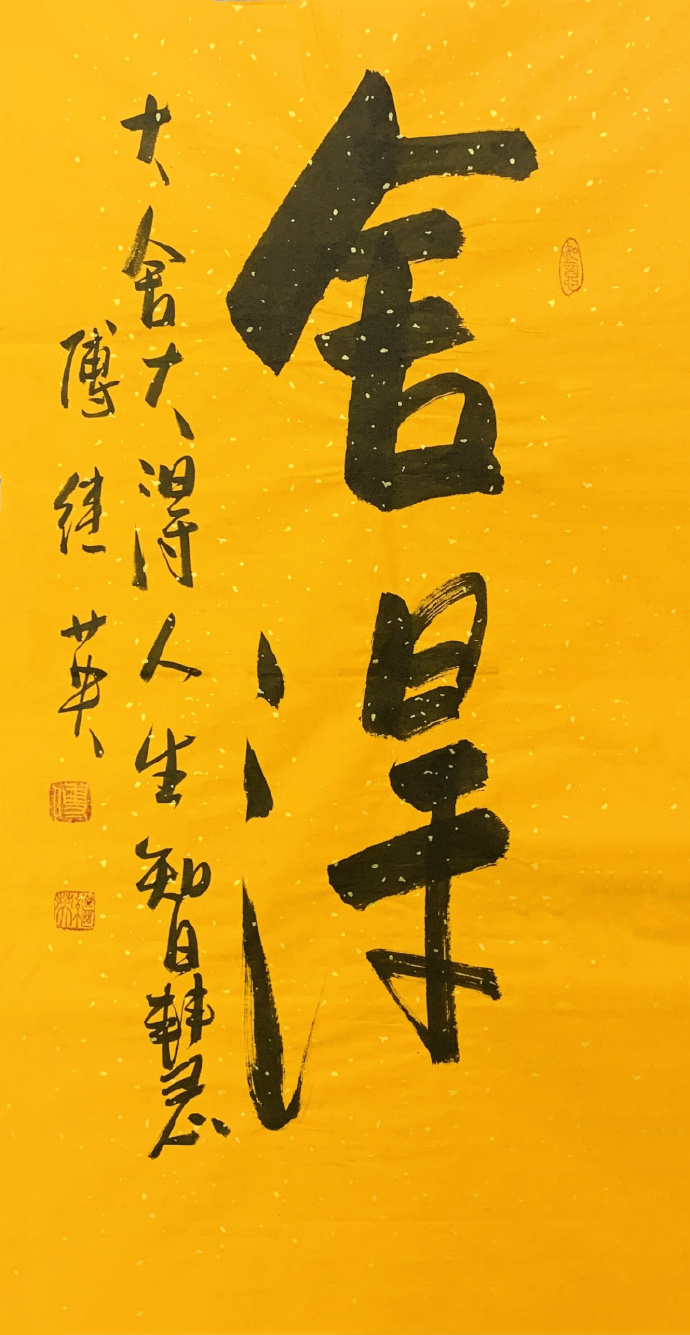 舍得
大舍大得人生智慧
傅继英